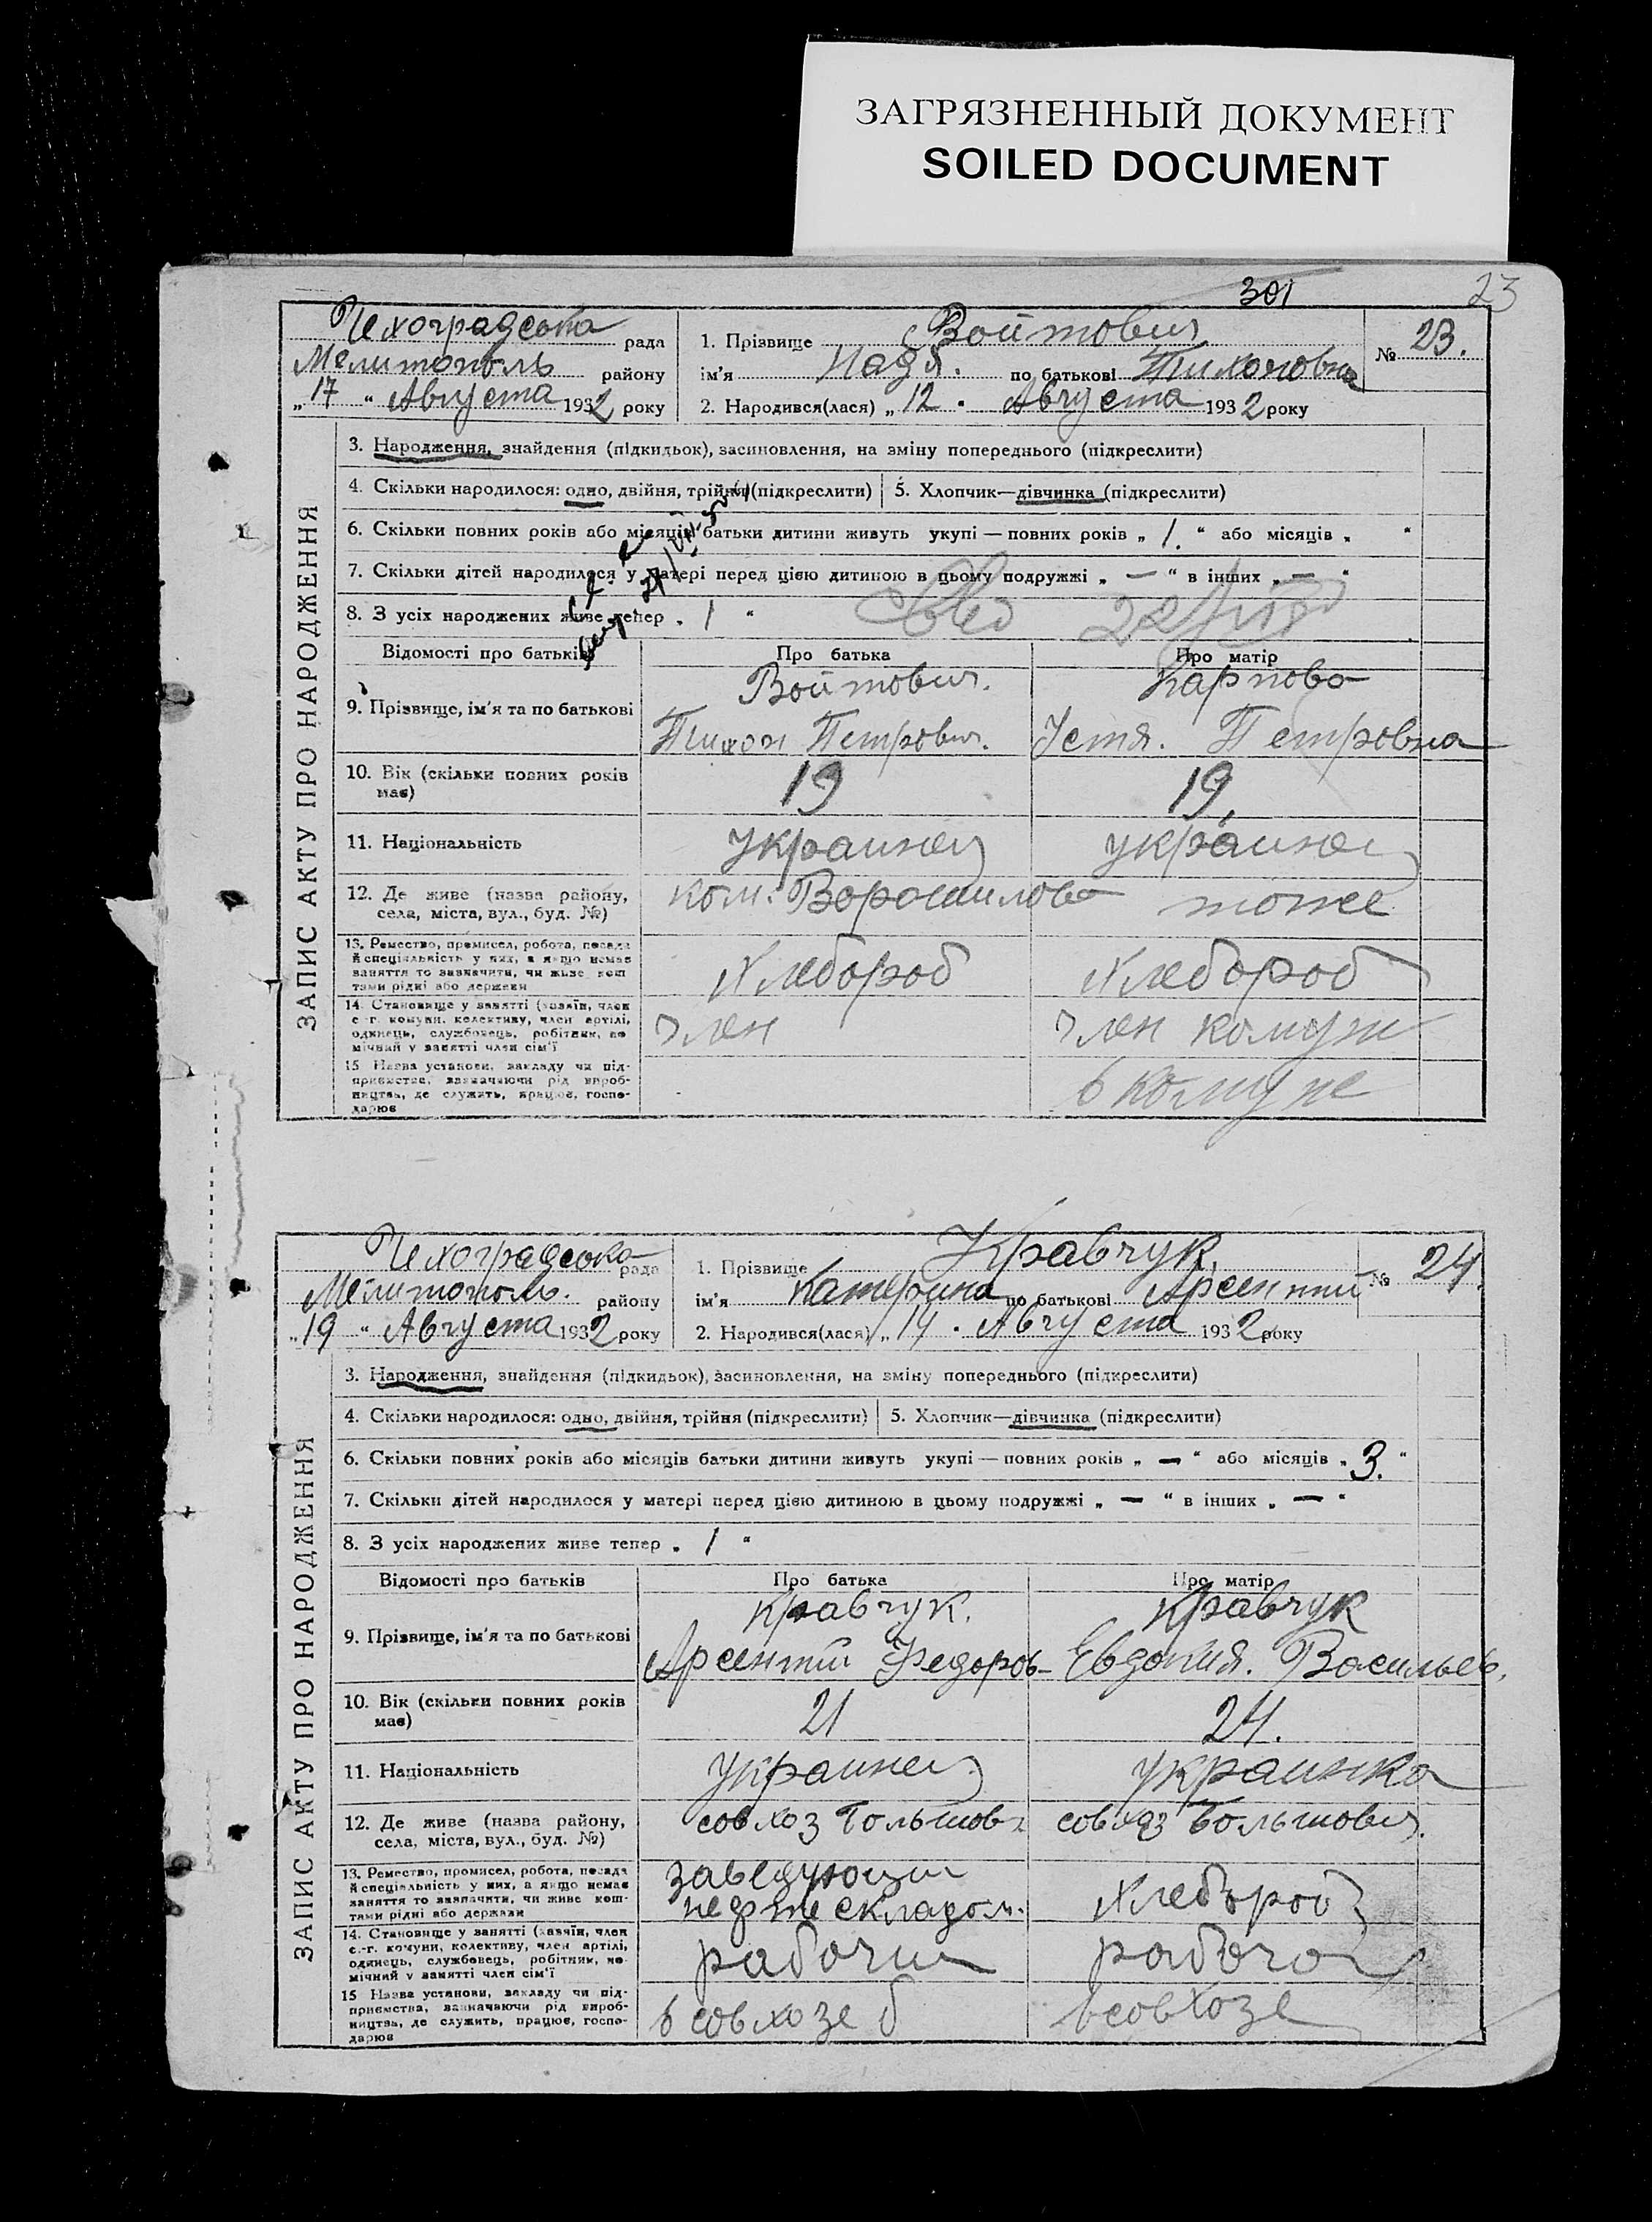 ЗАГРЯЗНЕННЫЙ ДОКУМЕНТ
SOILED DOCUMENT
301
23
ЗАПИС АКТУ ПРО НАРОДЖЕННЯ
Чехоградська рада
Мелитополь району
„17“ Августа 1932 року
1. Прізвище Войтович
ім'я Надя. по батькові Тихоновна
№ 23.
2. Народився(лася) „12. Августа 1932 року
3. Народження, знайдення (підкидьок), засиновлення, на зміну попереднього (підкреслити)
4. Скільки народилося: одно, двійня, трійня (підкреслити) 5. Хлопчик—дівчинка (підкреслити)
6. Скільки повних років або місяців батьки дитини живуть укупі — повних років „1.“ або місяців „ “
7. Скільки дітей народилося у матері перед цією дитиною в цьому подружжі „—“ в інших „—“
8. З усіх народжених живе тепер „1“
Відомості про батьків Про батька Про матір
9. Прізвище, ім'я та по батькові
Войтович. Карпова
Тихон Петрович. Устя. Петровна
10. Вік (скільки повних років має) 19 19,
11. Національність украинец украинец
12. Де живе (назва району, села, міста, вул., буд. №) ком. Ворошилова тоже
13. Ремество, промисел, робота, посада й спеціяльність у них, а якщо немає заняття то зазначити, чи живе кош тами рідні або держави Хлебороб Хлебороб
14. Становище у занятті (хазяїн, член с.-г. комуни, колективу, член артілі, одинець, службовець, робітник, по мічний у занятті член сім'ї член член комуни
15. Назва установи, закладу чи під- приємства, зазначаючи рід вироб- ництва, де служить, працює, госпо- дарює в комуне
ЗАПИС АКТУ ПРО НАРОДЖЕННЯ
Чехоградсока рада
Мелитополь. району
„19“ Августа 1932 року
1. Прізвище Кравчук.
ім'я Катерина по батькові Арсентий
№ 24.
2. Народився(лася) „14. Августа 1932 року
3. Народження, знайдення (підкидьок), засиновлення, на зміну попереднього (підкреслити)
4. Скільки народилося: одно, двійня, трійня (підкреслити) 5. Хлопчик—дівчинка (підкреслити)
6. Скільки повних років або місяців батьки дитини живуть укупі — повних років „—“ або місяців „3.“
7. Скільки дітей народилося у матері перед цією дитиною в цьому подружжі „—“ в інших „—“
8. З усіх народжених живе тепер „1“
Відомості про батьків Про батька Про матір
9. Прізвище, ім'я та по батькові
Кравчук. Кравчук
Арсентий Федоров- Евдокия. Васильев.
10. Вік (скільки повних років має) 21 24.
11. Національність украинец украинка
12. Де живе (назва району, села, міста, вул., буд. №) совхоз Большов. совхоз Большовик.
13. Ремество, промисел, робота, посада й спеціяльність у них, а якщо немає заняття то зазначити, чи живе кош- тами рідні або держави заведующий нефте складом. Хлебороб
14. Становище у занятті (хазяїн, член с.-г. комуни, колективу, член артілі, одинець, службовець, робітник, по мічний у занятті член сім'ї рабочий рабочая
15 Назва установи, закладу чи під- приємства, зазначаючи рід вироб- ництва, де служить, працює, госпо- дарює в совхозе б в совхозе